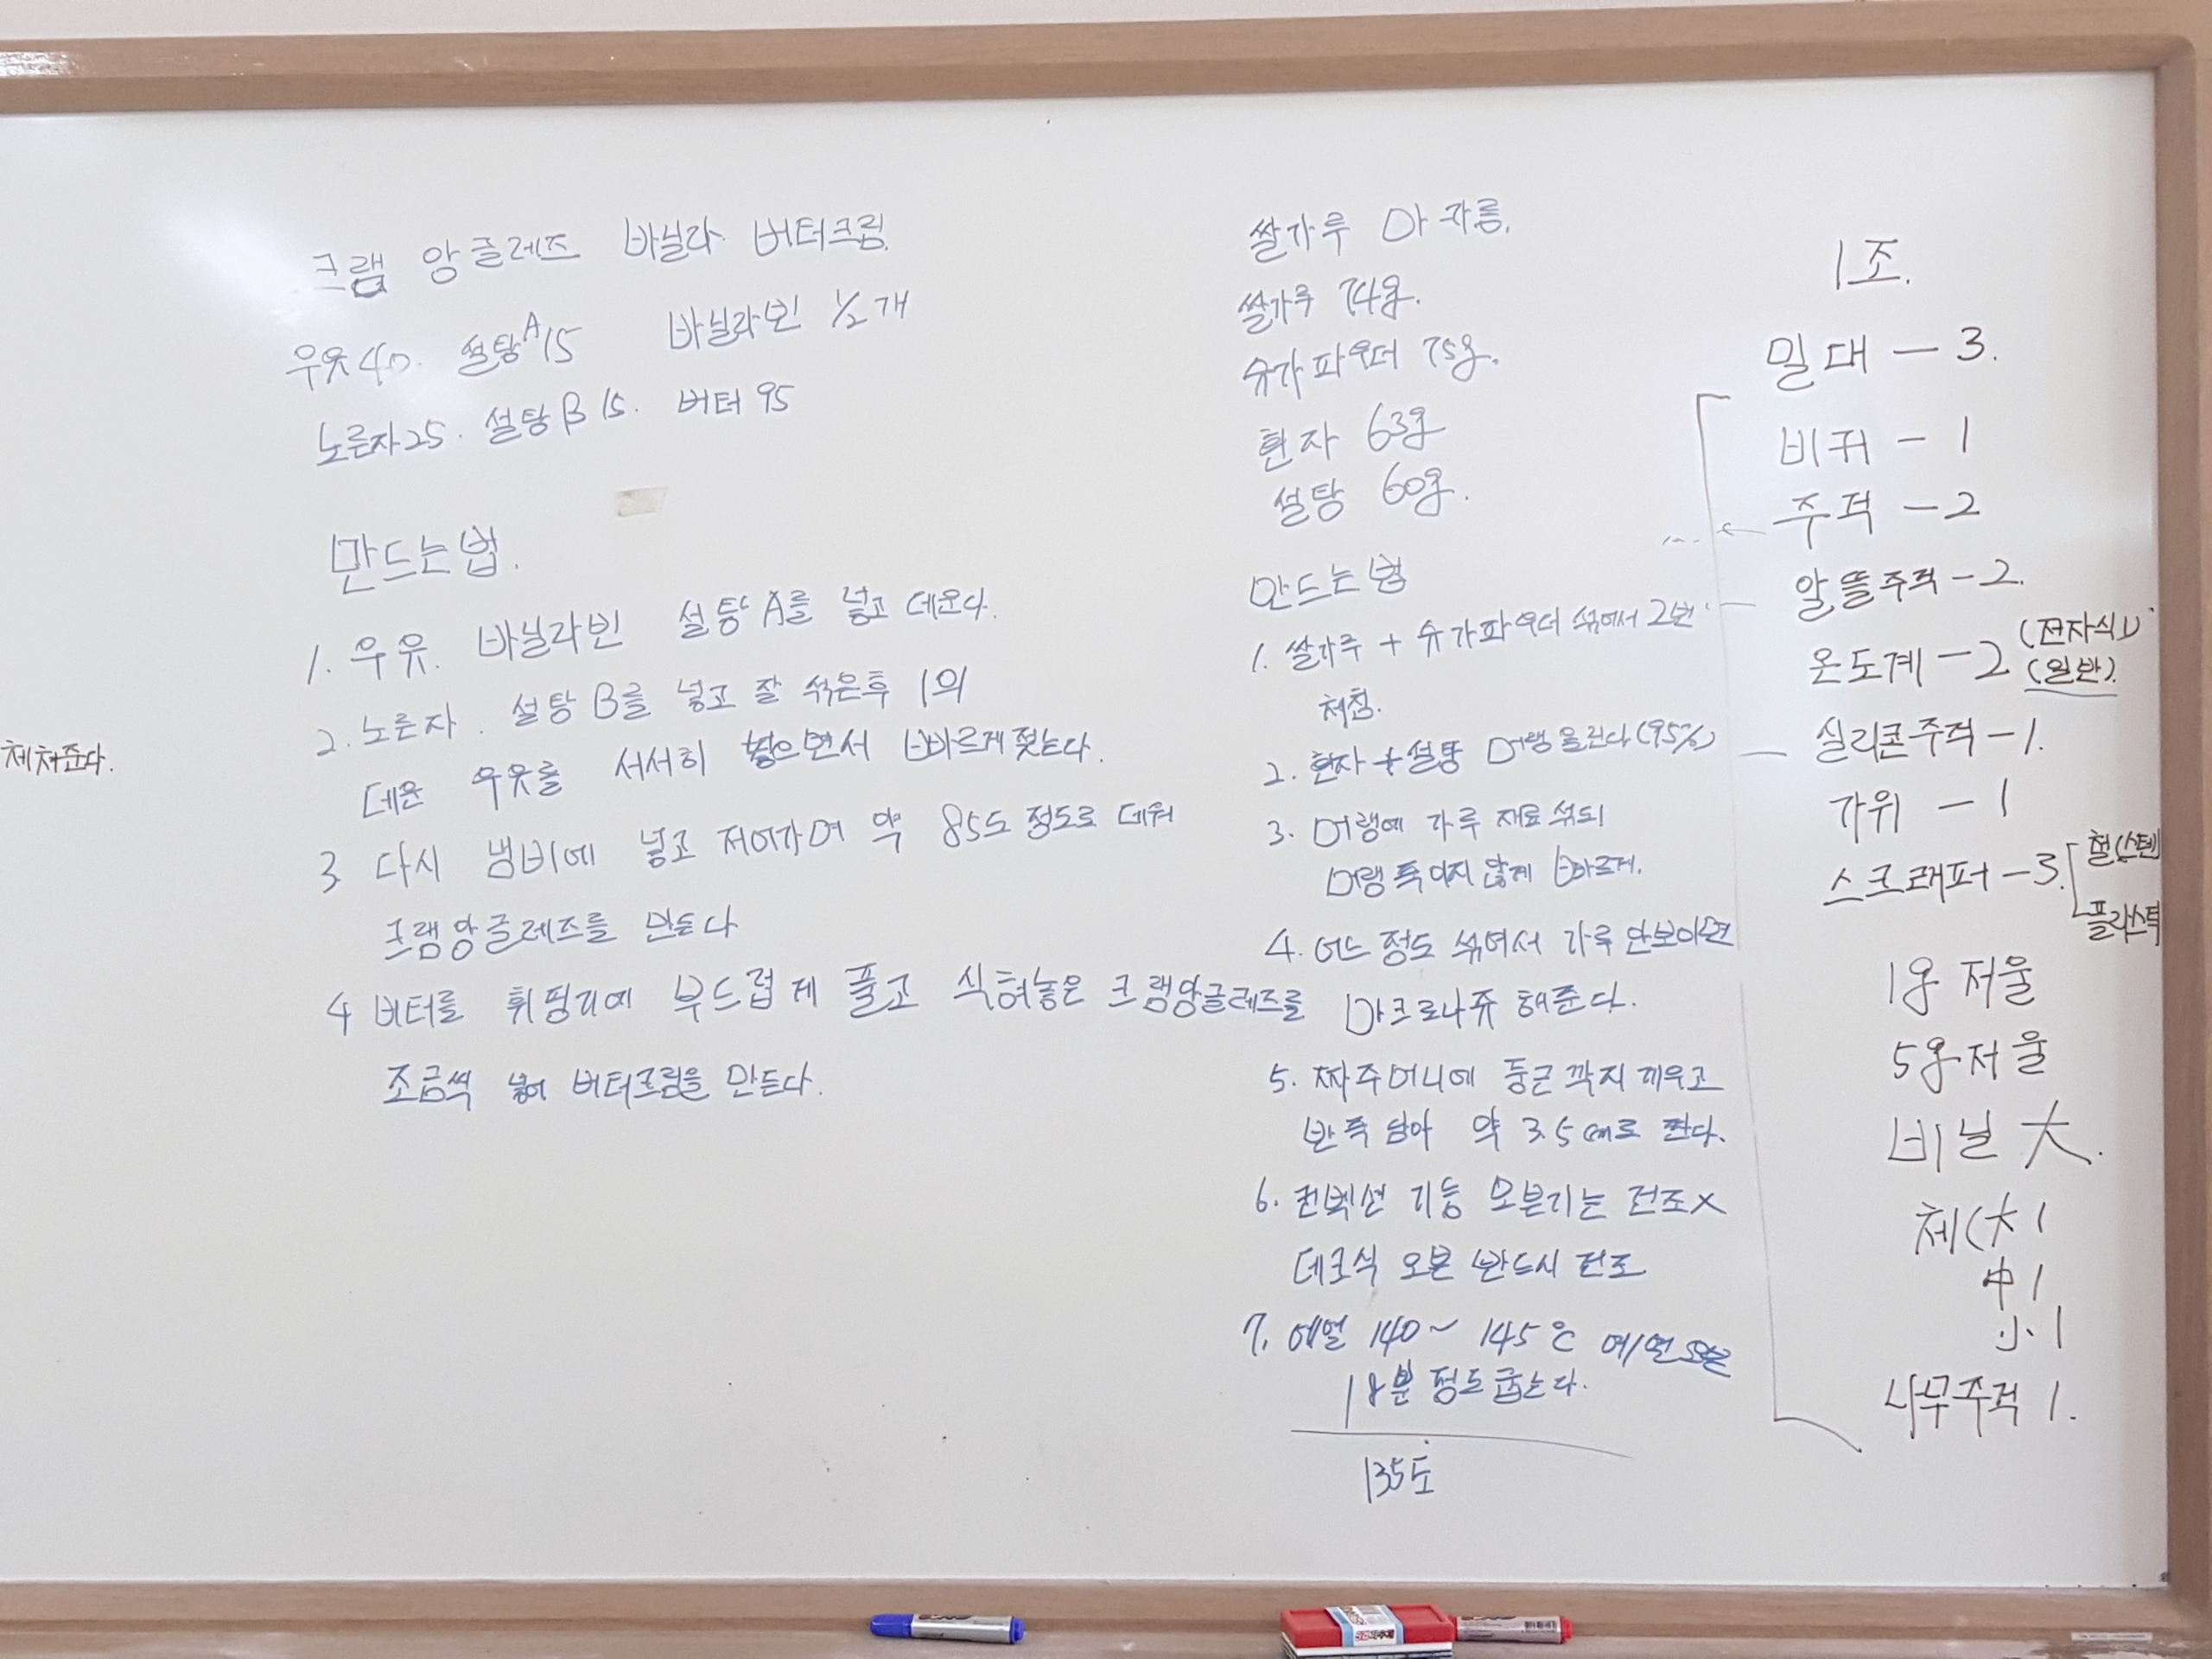 크램 앙글레즈 바닐라 버터크림.
우유40. 설탕A15 바닐라빈 1/2개
노른자25. 설탕B15. 버터95
만드는법.
1. 우유. 바닐라빈 설탕A를 넣고 데운다.
2. 노른자. 설탕B를 넣고 잘 섞은후 1의
데운 우유를 서서히 넣으면서 빠르게젖는다.
3 다시 냄비에 넣고 저어가며 약 85도 정도로 데워
크램앙글레즈를 만든다
4 버터를 휘핑기에 부드럽게 풀고 식혀놓은 크램앙글레즈를
조금씩 넣어 버터크림을 만든다.
체쳐준다.
쌀가루 마카롱.
쌀가루 74g.
슈가파우더 75g.
흰자 63g
설탕 60g.
만드는법
1. 쌀가루 + 슈가파우더 섞어서 2번
체침.
2. 흰자+설탕 머랭올린다(95%)
3. 머랭에 가루 재료섞되
머랭죽이지 않게 빠르게.
4. 어느정도 섞여서 가루 안보이면
마크로나쥬 해준다.
5. 짜주머니에 둥근 깍지 끼우고
반죽담아 약 3.5cm로 짠다.
6. 컨벡션 기능 오븐기는 건조X
데크식 오븐 반드시 건조
7. 예열 140~145℃ 예열
18분정도굽는다.
135도
1조.
밀대 - 3.
비커 - 1
주걱 - 2
알뜰주걱 - 2.
온도계 - 2 (전자식1)
(일반).
실리콘주걱 - 1.
가위 - 1
스크래퍼 - 3. 철(스텐
플라스틱
1g 저울
5g 저울
비닐 大.
체(大1
中1
小1
나무주걱 1.